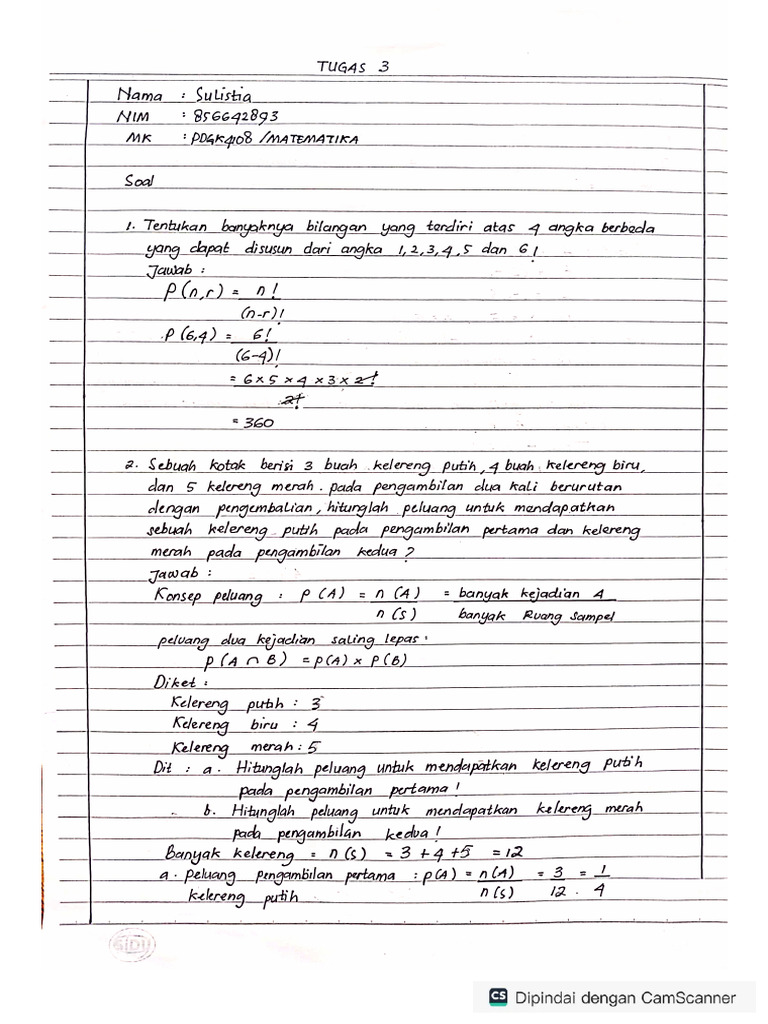 TUGAS 3
Nama : Sulistia
NIM : 856642893
MK : PDGK4108 /MATEMATIKA
Soal
1. Tentukan banyaknya bilangan yang terdiri atas 4 angka berbeda
yang dapat disusun dari angka 1,2,3,4,5 dan 6!
Jawab :
P(n,r) = n!
(n-r)!
P(6,4) = 6!
(6-4)!
= 6 x 5 x 4 x 3 x 2!
2!
= 360
2. Sebuah kotak berisi 3 buah kelereng putih, 4 buah kelereng biru,
dan 5 kelereng merah. pada pengambilan dua kali berurutan
dengan pengembalian, hitunglah peluang untuk mendapatkan
sebuah kelereng putih pada pengambilan pertama dan kelereng
merah pada pengambilan kedua?
Jawab :
Konsep peluang : P (A) = n (A) = banyak kejadian A
n (s) banyak Ruang sampel
peluang dua kejadian saling lepas.
P (A ∩ B) = P(A) x P(B)
Diket :
Kelereng putih : 3
Kelereng biru : 4
Kelereng merah : 5
Dit : a. Hitunglah peluang untuk mendapatkan kelereng putih
pada pengambilan pertama!
b. Hitunglah peluang untuk mendapatkan kelereng merah
pada pengambilan kedua!
Banyak kelereng = n (s) = 3 + 4 + 5 = 12
a. peluang pengambilan pertama : p(A) = n(A) = 3 = 1
kelereng putih n (s) 12 4
SIDU
CS Dipindai dengan CamScanner